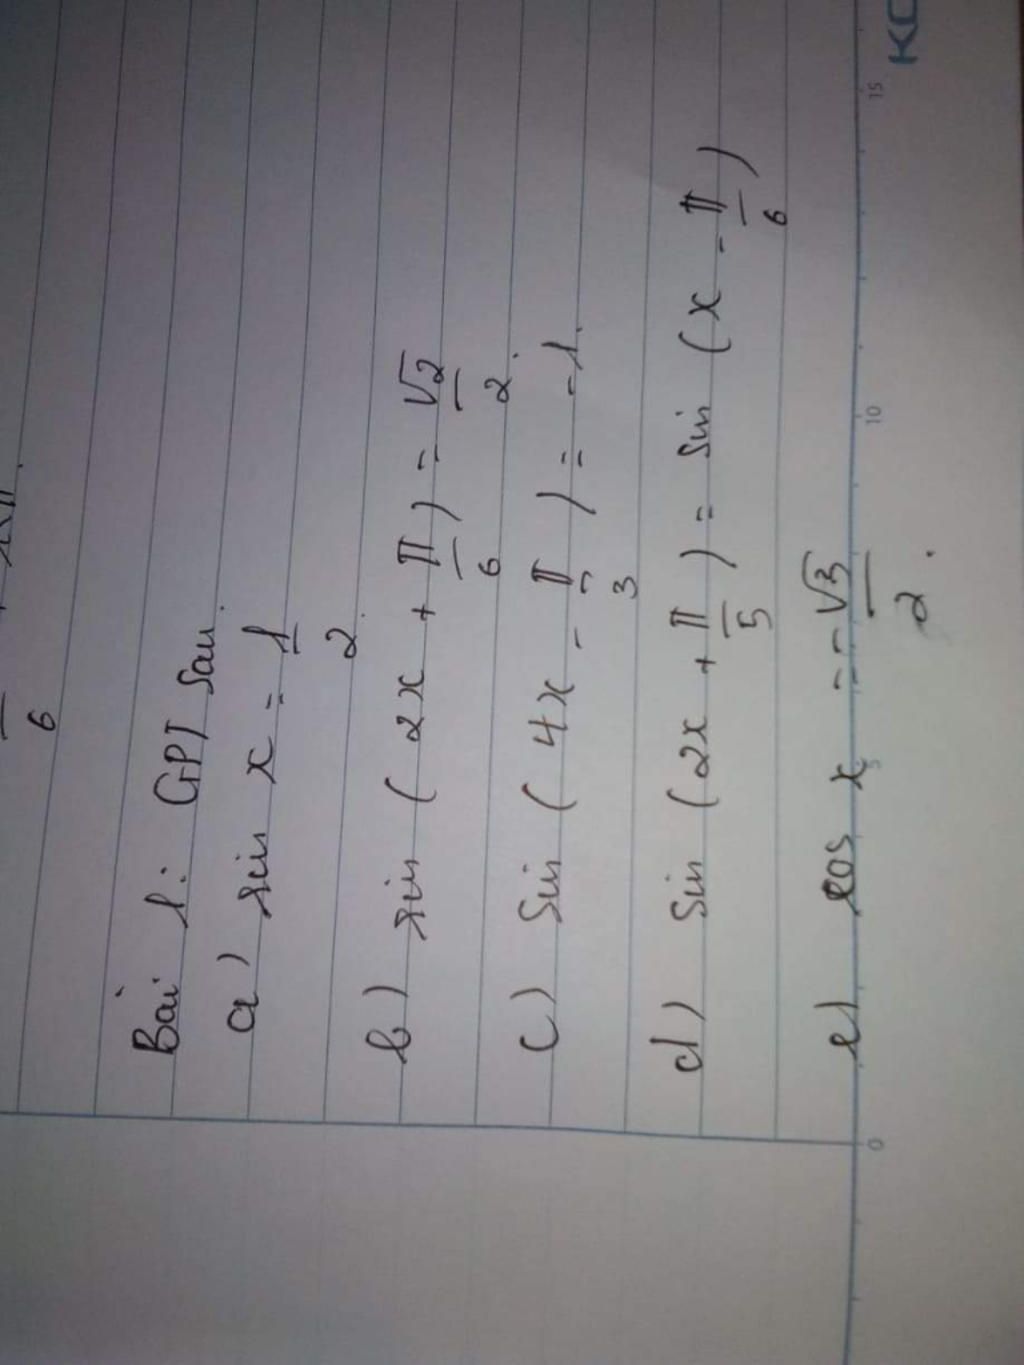 6
Bài 1: GPT sau.
a) sin x = 1/2.
b) sin (2x + π/6) = √2/2.
c) Sin (4x - π/3) = -1.
d) Sin (2x + π/5) = sin (x - π/6)
e) cos x = -√3/2.
0 5 10 15
KO